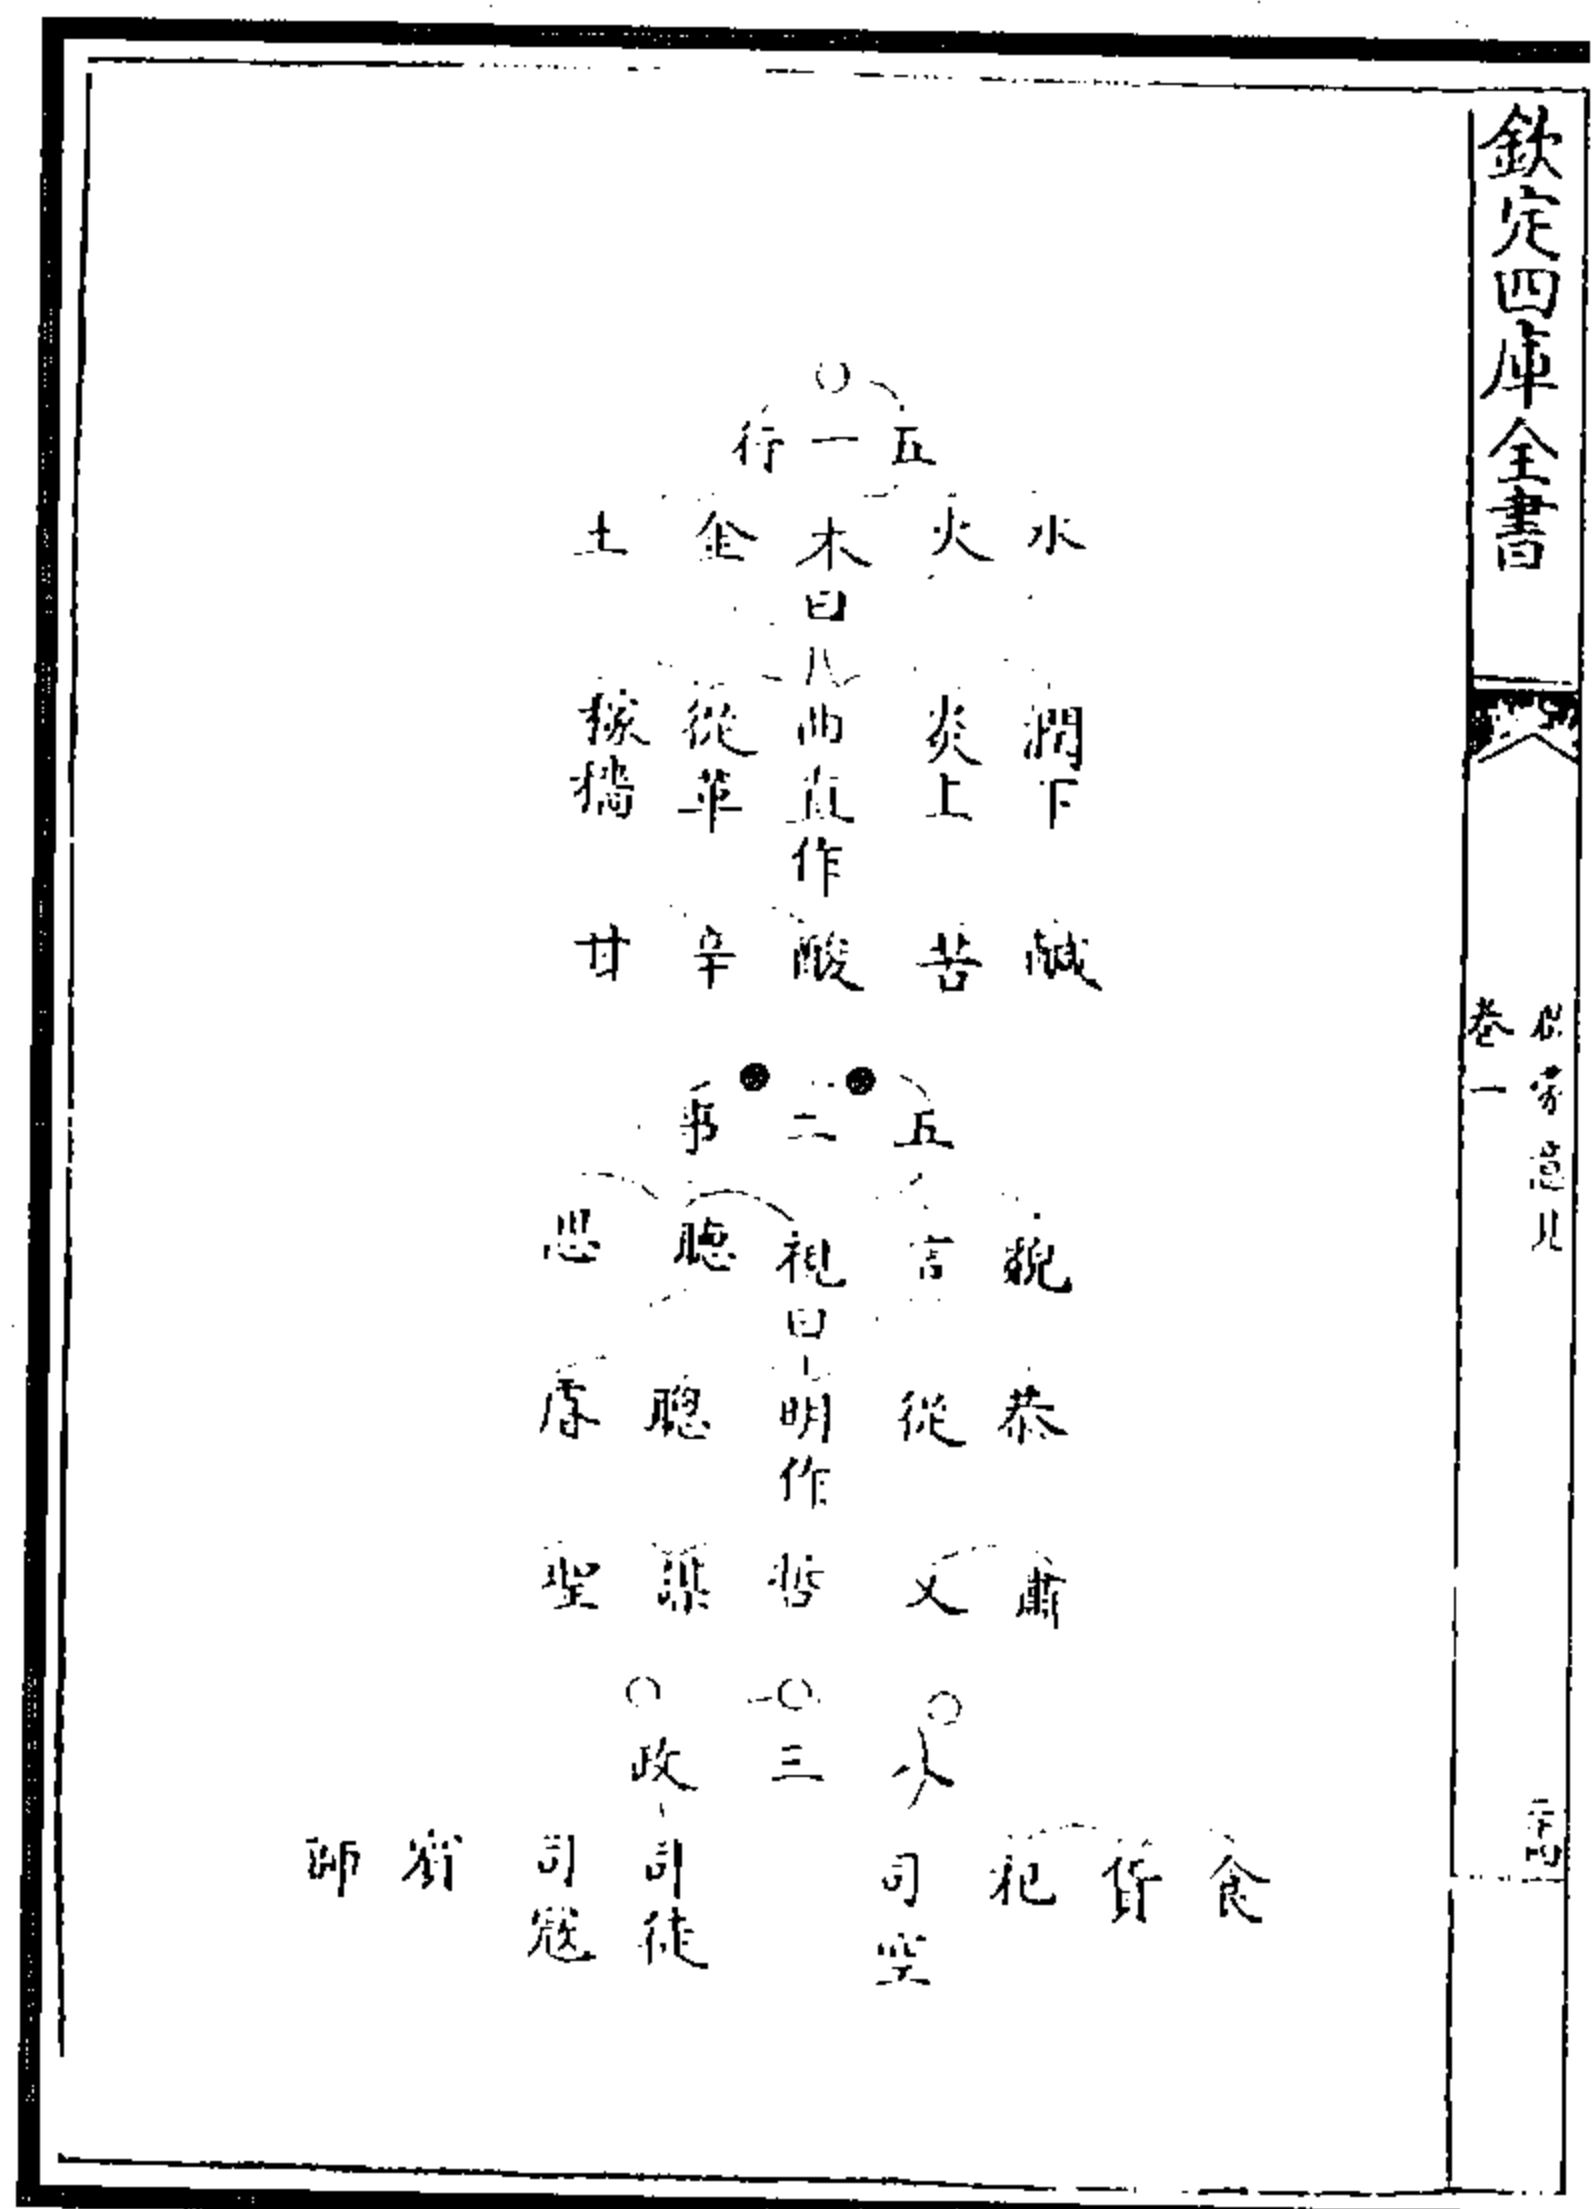 欽定四庫全書
卷一
五一行
水火木金土
曰
潤下 炎上 曲直 從革 稼穡
作
鹹苦酸辛甘
五二事
貌言視聽思
曰
恭從明聰睿
作
肅乂哲謀聖
八三政
食 貨 祀 司空 司徒 司寇 賓 師